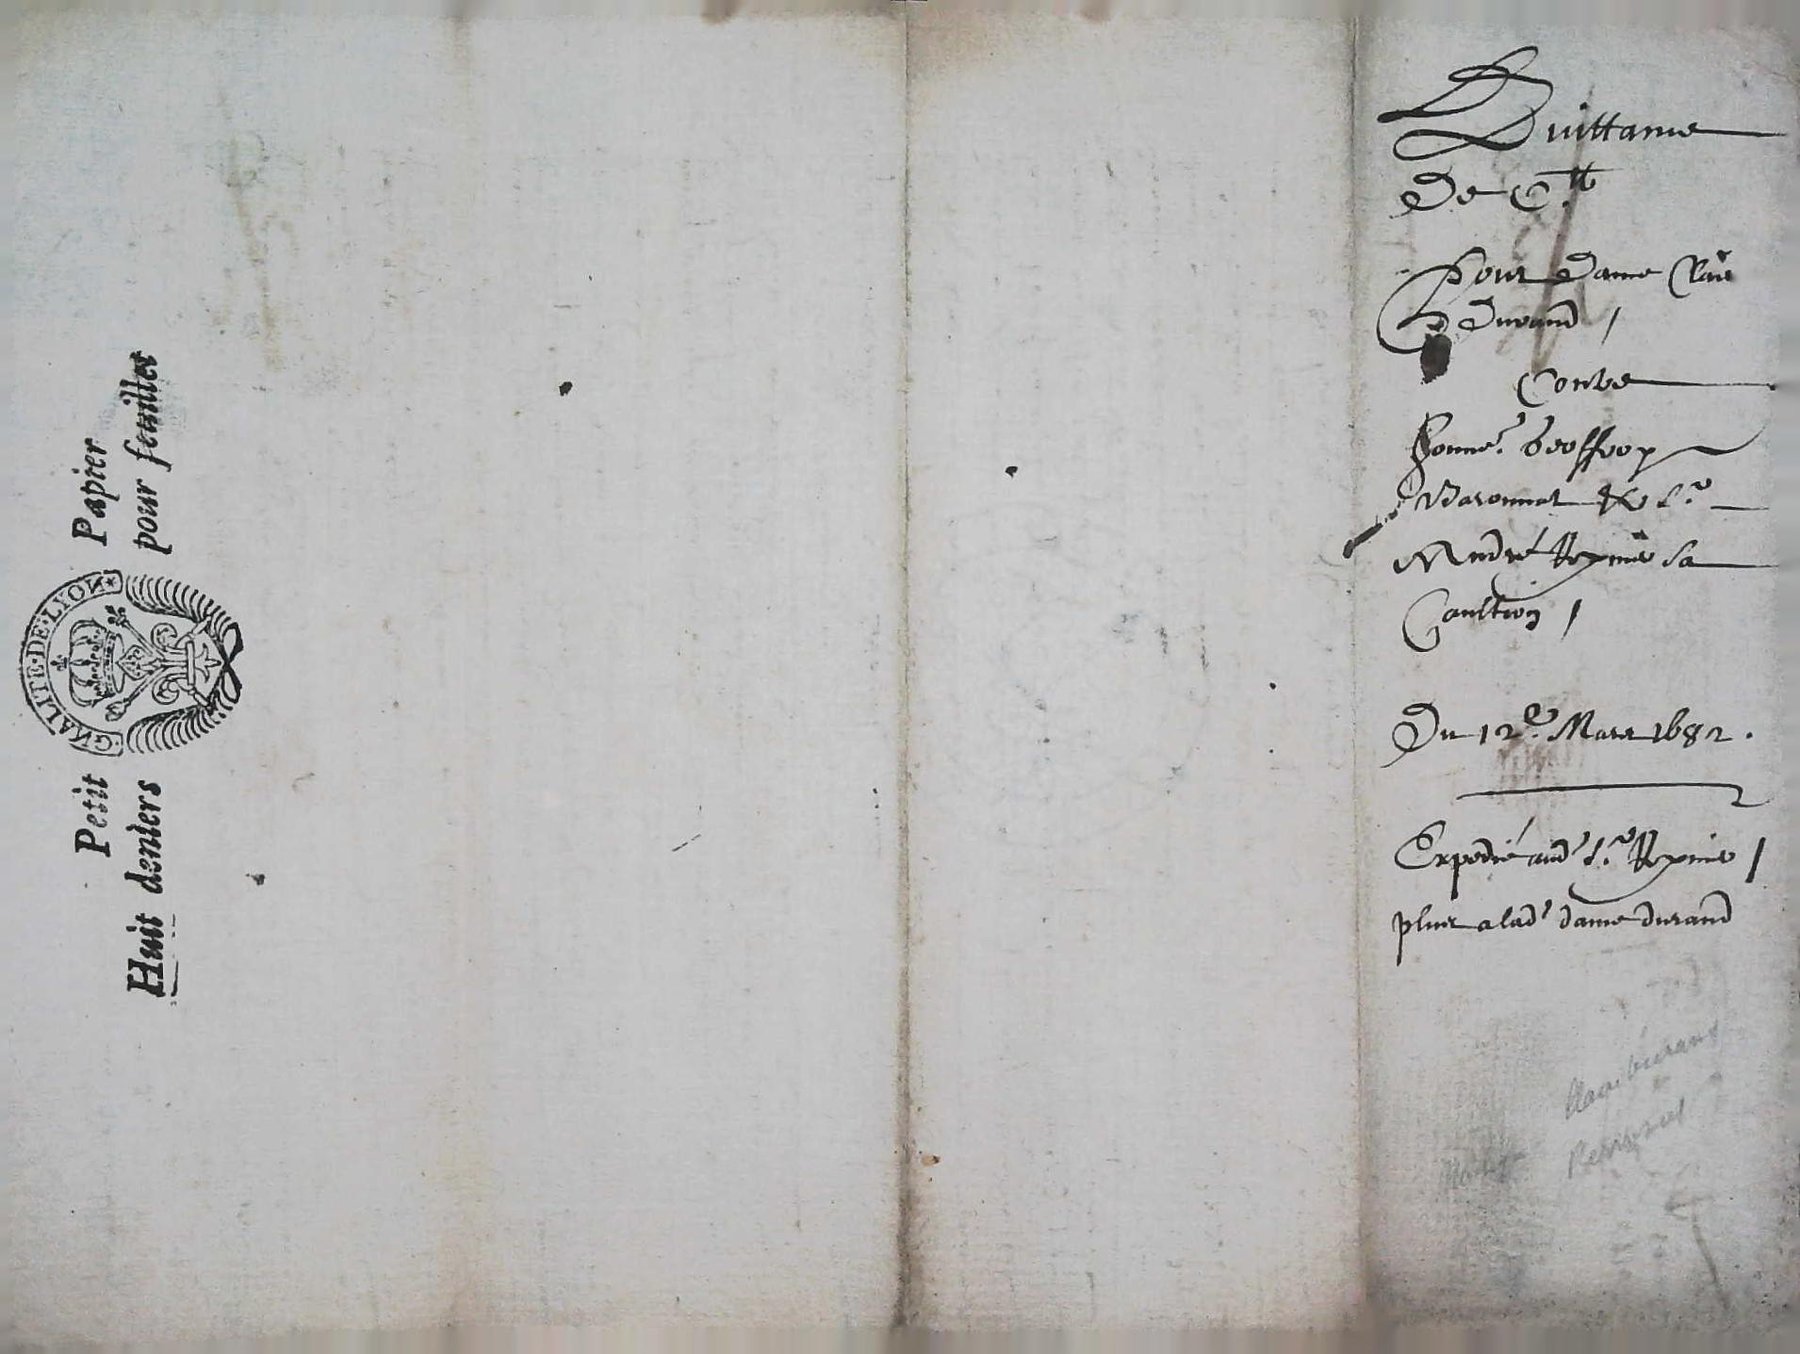 Petit Papier
Huit deniers pour feuillet
GNALITE·DE·LYON
Quittance
De C.tt
Pour Dame Clau
Durand /
Contre
honne.r Geoffroy
Baronnat & s.r
André Reynie sa
Caultion /
Du 12.e Mars 1682.
Expedié aud.t s.r Reynie /
plus a lad.t dame durand